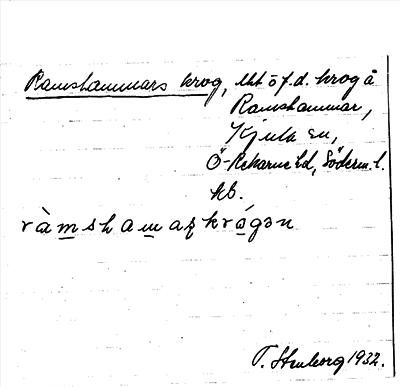 Ramshammars krog, lht o f.d. krog å
Ramshammar,
Kjula sn,
Ö-Rekarne hd, Söderm. l.
kb.
ràmshamaʂkrágən
T. Stenborg 1932.